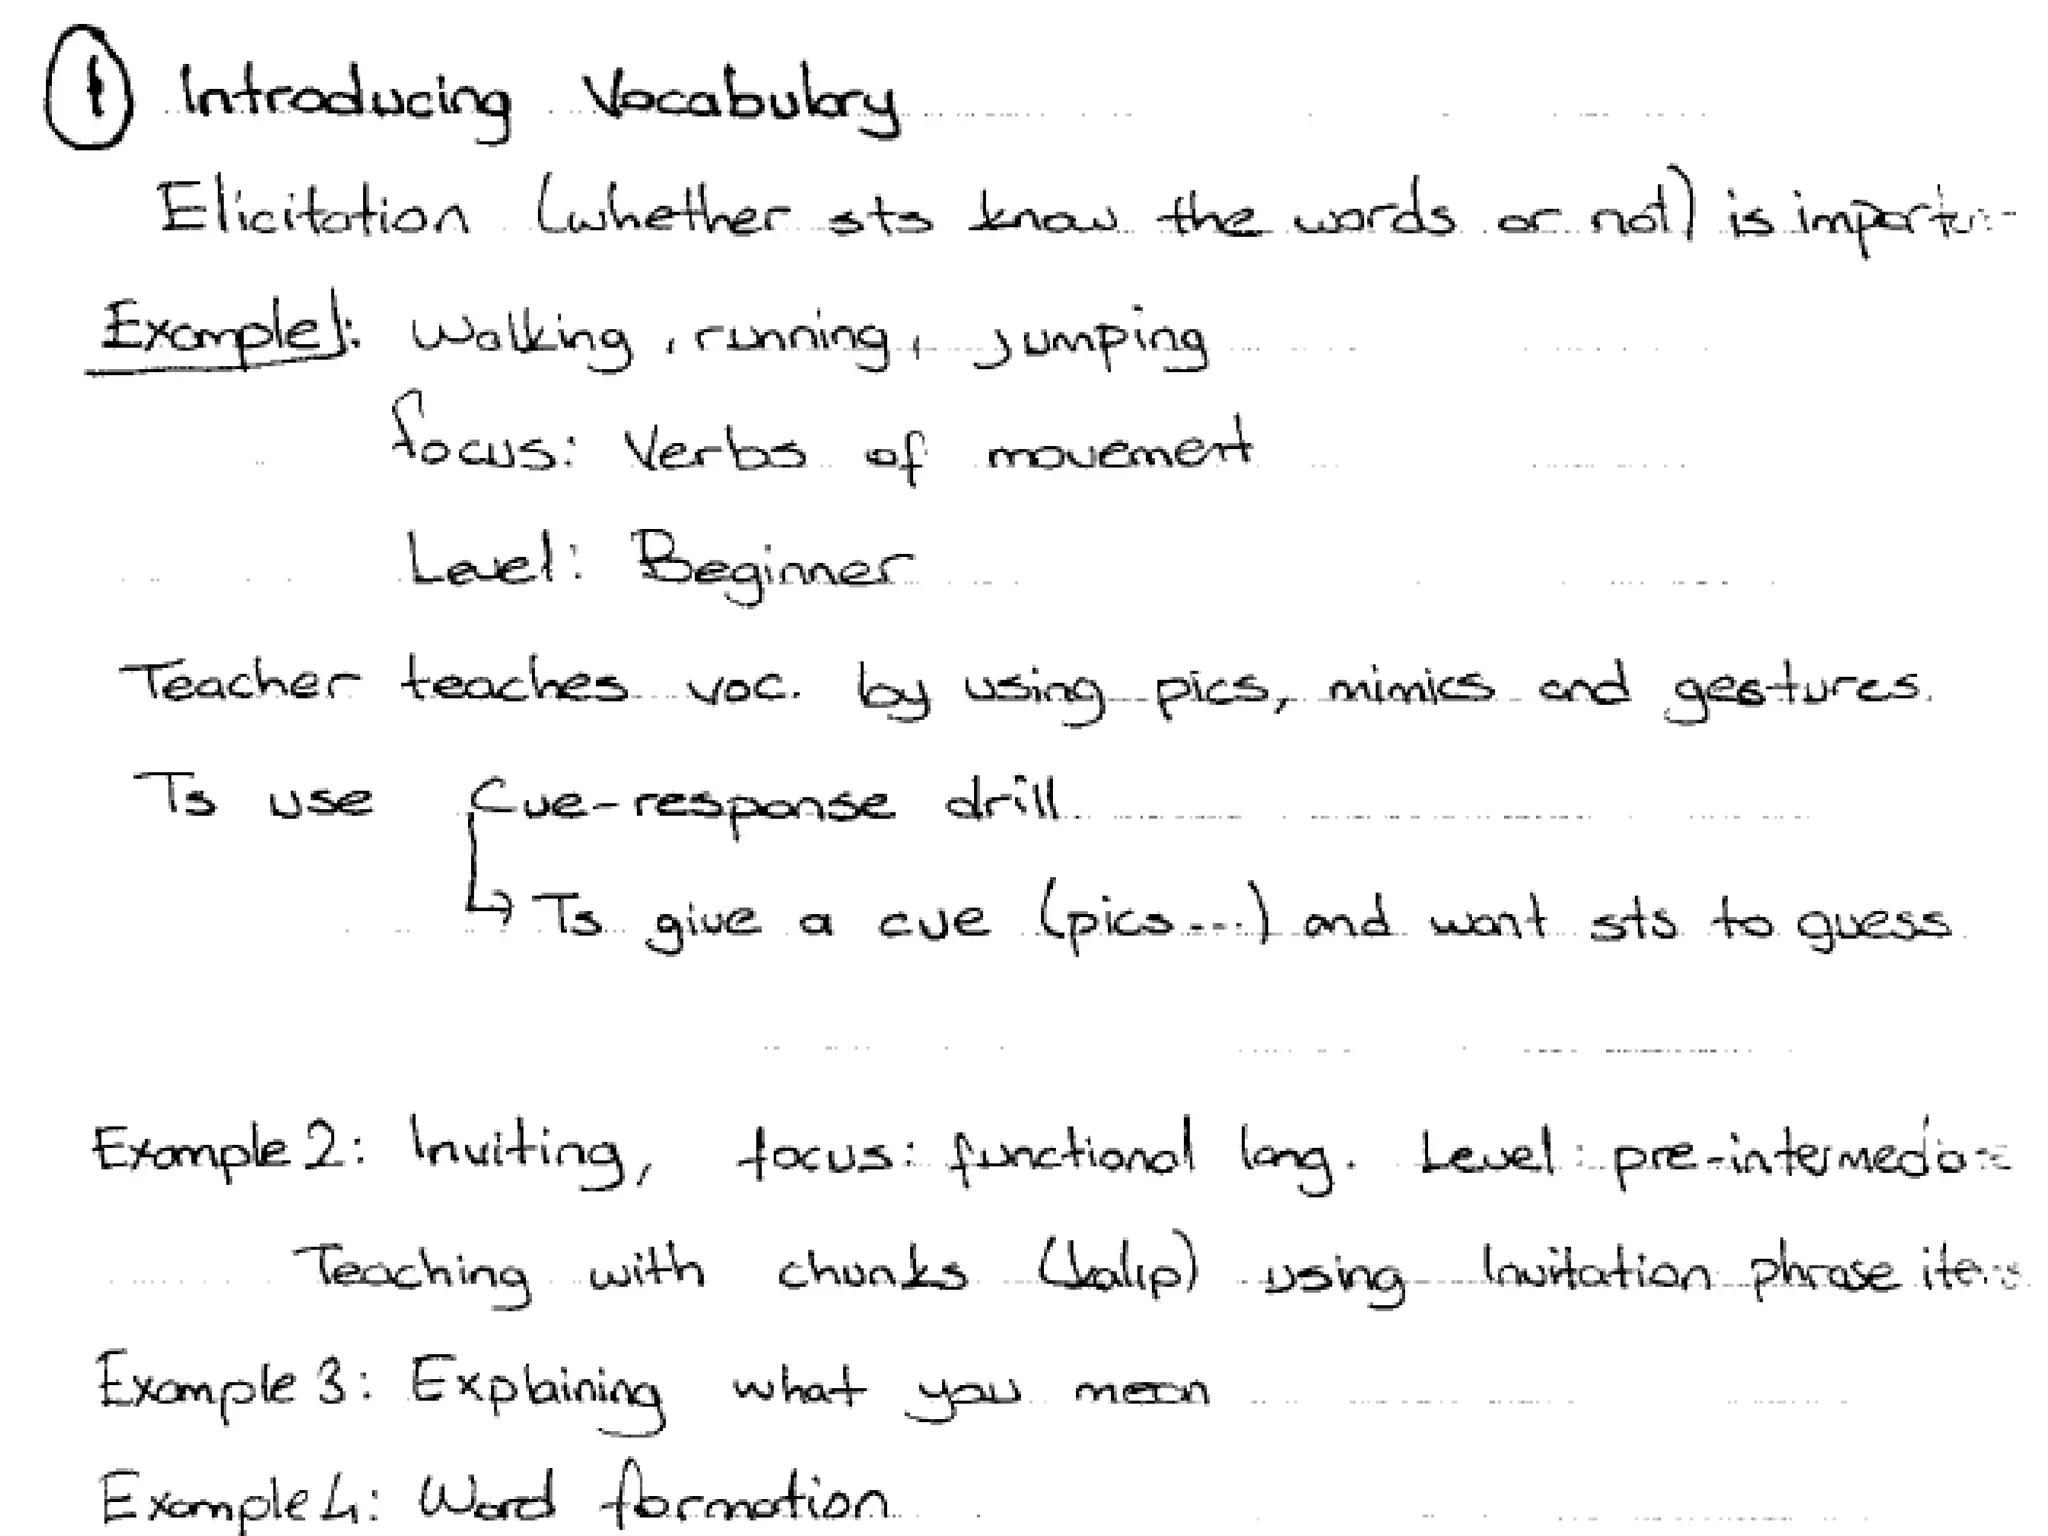 ① Introducing Vocabulary
Elicitation (whether sts know the words or not) is
Example 1: Walking, running, jumping
focus: Verbs of movement
Level: Beginner
Teacher teaches voc. by using pics, mimics and gestures.
Ts use Cue-response drill.
↳ Ts give a cue (pics...) and want sts to guess
Example 2: Inviting, focus: functional lang. Level: pre-intermediate
Teaching with chunks (kalıp) using Invitation phrase
Example 3: Explaining what you mean
Example 4: Word formation